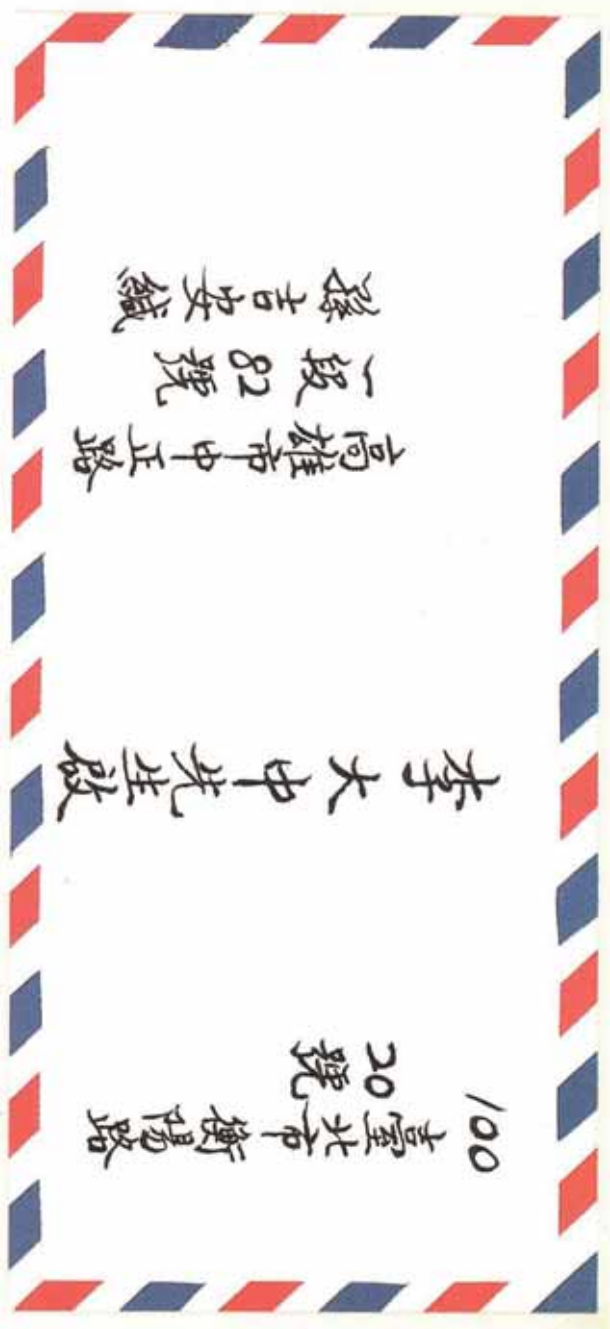 100
臺北市衡陽路
20號
李大中先生啟
高雄市中正路
一段82號
孫吉安緘